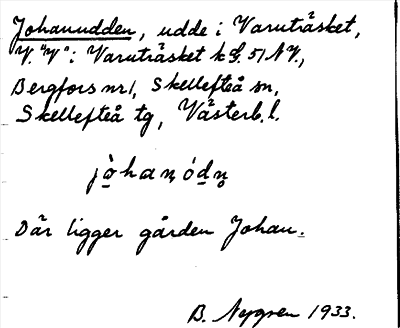 Johanudden, udde i Varuträsket,
V. "V" i Varuträsket k bl. 51 NV.,
Bergfors nr 1, Skellefteå sn,
Skellefteå tg, Västerb. l.
jòhanódn
Där ligger gården Johan.
B. Nygren 1933.